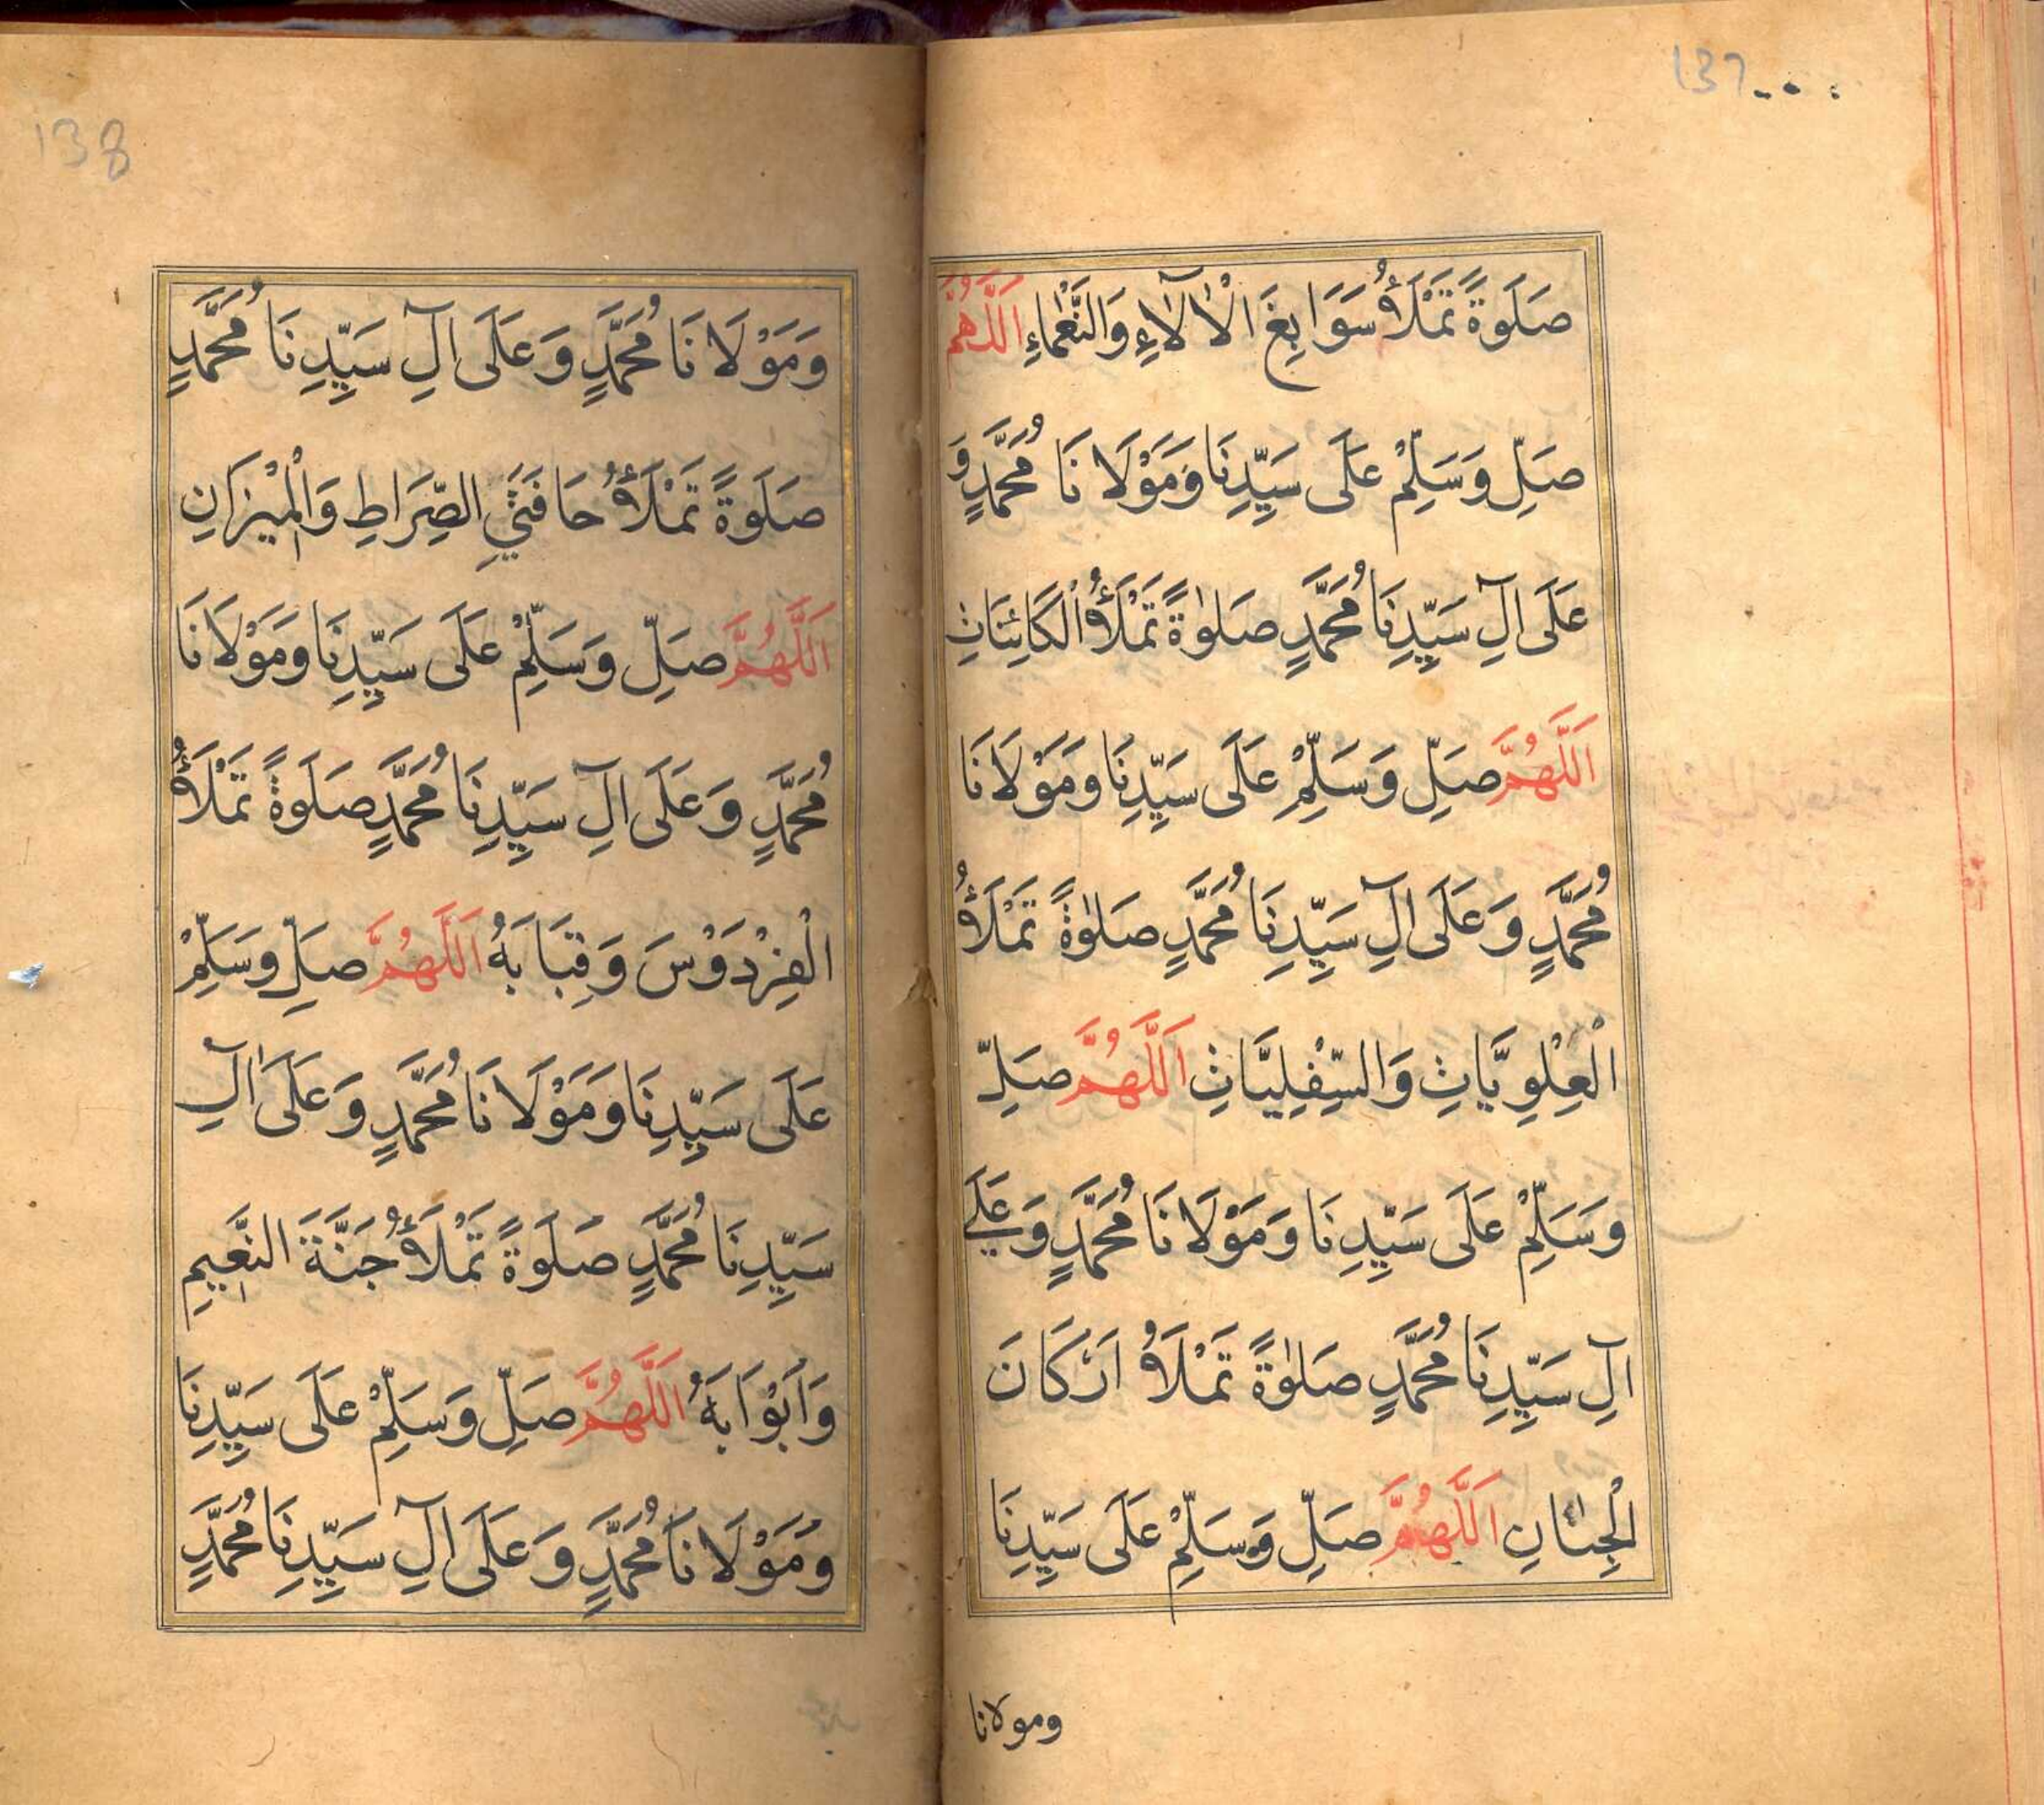 137
صَلَوةً تَمْلَأُ سَوَابِغَ الْاٰلَآءِ وَالنَّعْمَاءِ اَللّٰهُمَّ
صَلِّ وَسَلِّمْ عَلَى سَيِّدِنَا وَمَوْلَانَا مُحَمَّدٍ وَ
عَلَى اٰلِ سَيِّدِنَا مُحَمَّدٍ صَلٰوةً تَمْلَأُ الْكَائِنَاتِ
اَللَّهُمَّ صَلِّ وَسَلِّمْ عَلَى سَيِّدِنَا وَمَوْلَانَا
مُحَمَّدٍ وَعَلَى اٰلِ سَيِّدِنَا مُحَمَّدٍ صَلٰوةً تَمْلَأُ
الْعِلْوِيَّاتِ وَالسِّفْلِيَّاتِ اَللَّهُمَّ صَلِّ
وَسَلِّمْ عَلَى سَيِّدِنَا وَمَوْلَانَا مُحَمَّدٍ وَعَلَى
اٰلِ سَيِّدِنَا مُحَمَّدٍ صَلٰوةً تَمْلَأُ اَرْكَانَ
الْجِنَانِ اَللَّهُمَّ صَلِّ وَسَلِّمْ عَلَى سَيِّدِنَا
ومولانا
138
وَمَوْلَانَا مُحَمَّدٍ وَعَلَى آلِ سَيِّدِنَا مُحَمَّدٍ
صَلَوةً تَمْلَأُ حَافَتَيِ الصِّرَاطِ وَالْمِيْزَانِ
اَللَّهُمَّ صَلِّ وَسَلِّمْ عَلَى سَيِّدِنَا وَمَوْلَانَا
مُحَمَّدٍ وَعَلَى آلِ سَيِّدِنَا مُحَمَّدٍ صَلَوةً تَمْلَأُ
الْفِرْدَوْسَ وَقِبَابَهُ اَللَّهُمَّ صَلِّ وَسَلِّمْ
عَلَى سَيِّدِنَا وَمَوْلَانَا مُحَمَّدٍ وَعَلَى اٰلِ
سَيِّدِنَا مُحَمَّدٍ صَلَوةً تَمْلَأُ جَنَّةَ النَّعِيمِ
وَاَبْوَابَهُ اَللَّهُمَّ صَلِّ وَسَلِّمْ عَلَى سَيِّدِنَا
وَمَوْلَانَا مُحَمَّدٍ وَعَلَى آلِ سَيِّدِنَا مُحَمَّدٍ